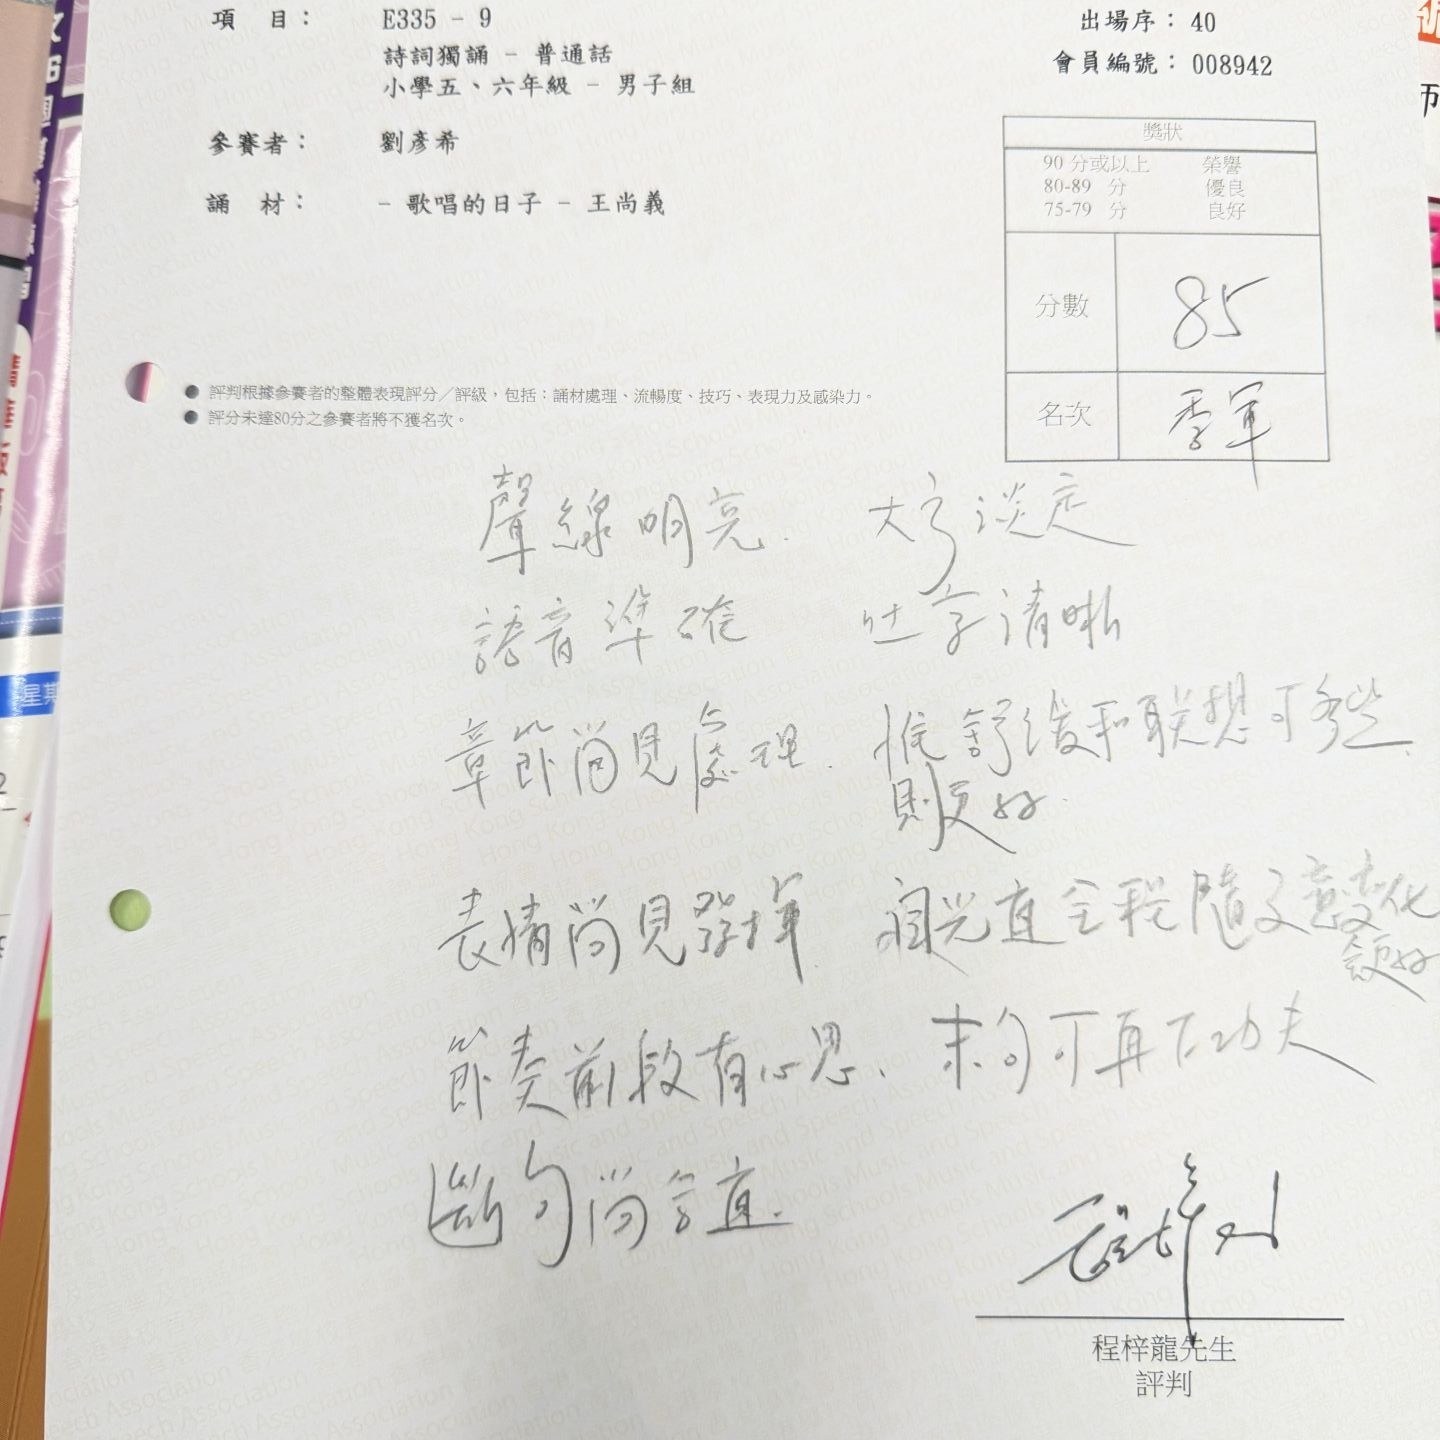 項 目： E335 - 9
出場序： 40
詩詞獨誦 - 普通話
會員編號： 008942
小學五、六年級 - 男子組
參賽者： 劉彥希
誦 材： - 歌唱的日子 - 王尚義
獎狀
90 分或以上 榮譽
80-89 分 優良
75-79 分 良好
分數 85
名次 季軍
● 評判根據參賽者的整體表現評分／評級，包括：誦材處理、流暢度、技巧、表現力及感染力。
● 評分未達80分之參賽者將不獲名次。
聲線明亮. 大方淡定
語音準確 吐字清晰
章節尚見處理. 惟舒缓和联想可多些.
則更好.
表情尚見發揮. 眼光直全程隨文意变化
更好
節奏前段有心思、末句可再下功夫
斷句尚合宜.
程梓龍先生
評判
星期